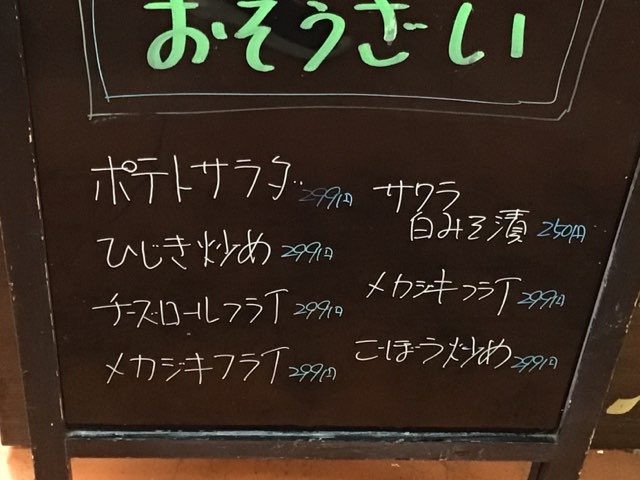 おそうざい
ポテトサラダ 299円
ひじき炒め 299円
チーズロールフライ 299円
メカジキフライ 299円
サワラ
白みそ漬 250円
メカジキフライ 299円
ごぼう炒め 299円